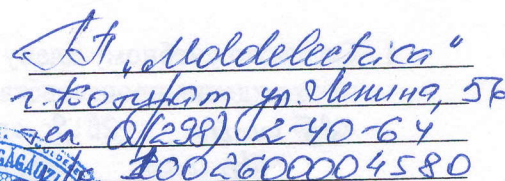 ГП „Moldelectrica"
г. Комрат ул. Ленина, 56
тел 0(298) 2-40-64
1002600004580
GAGAUZ